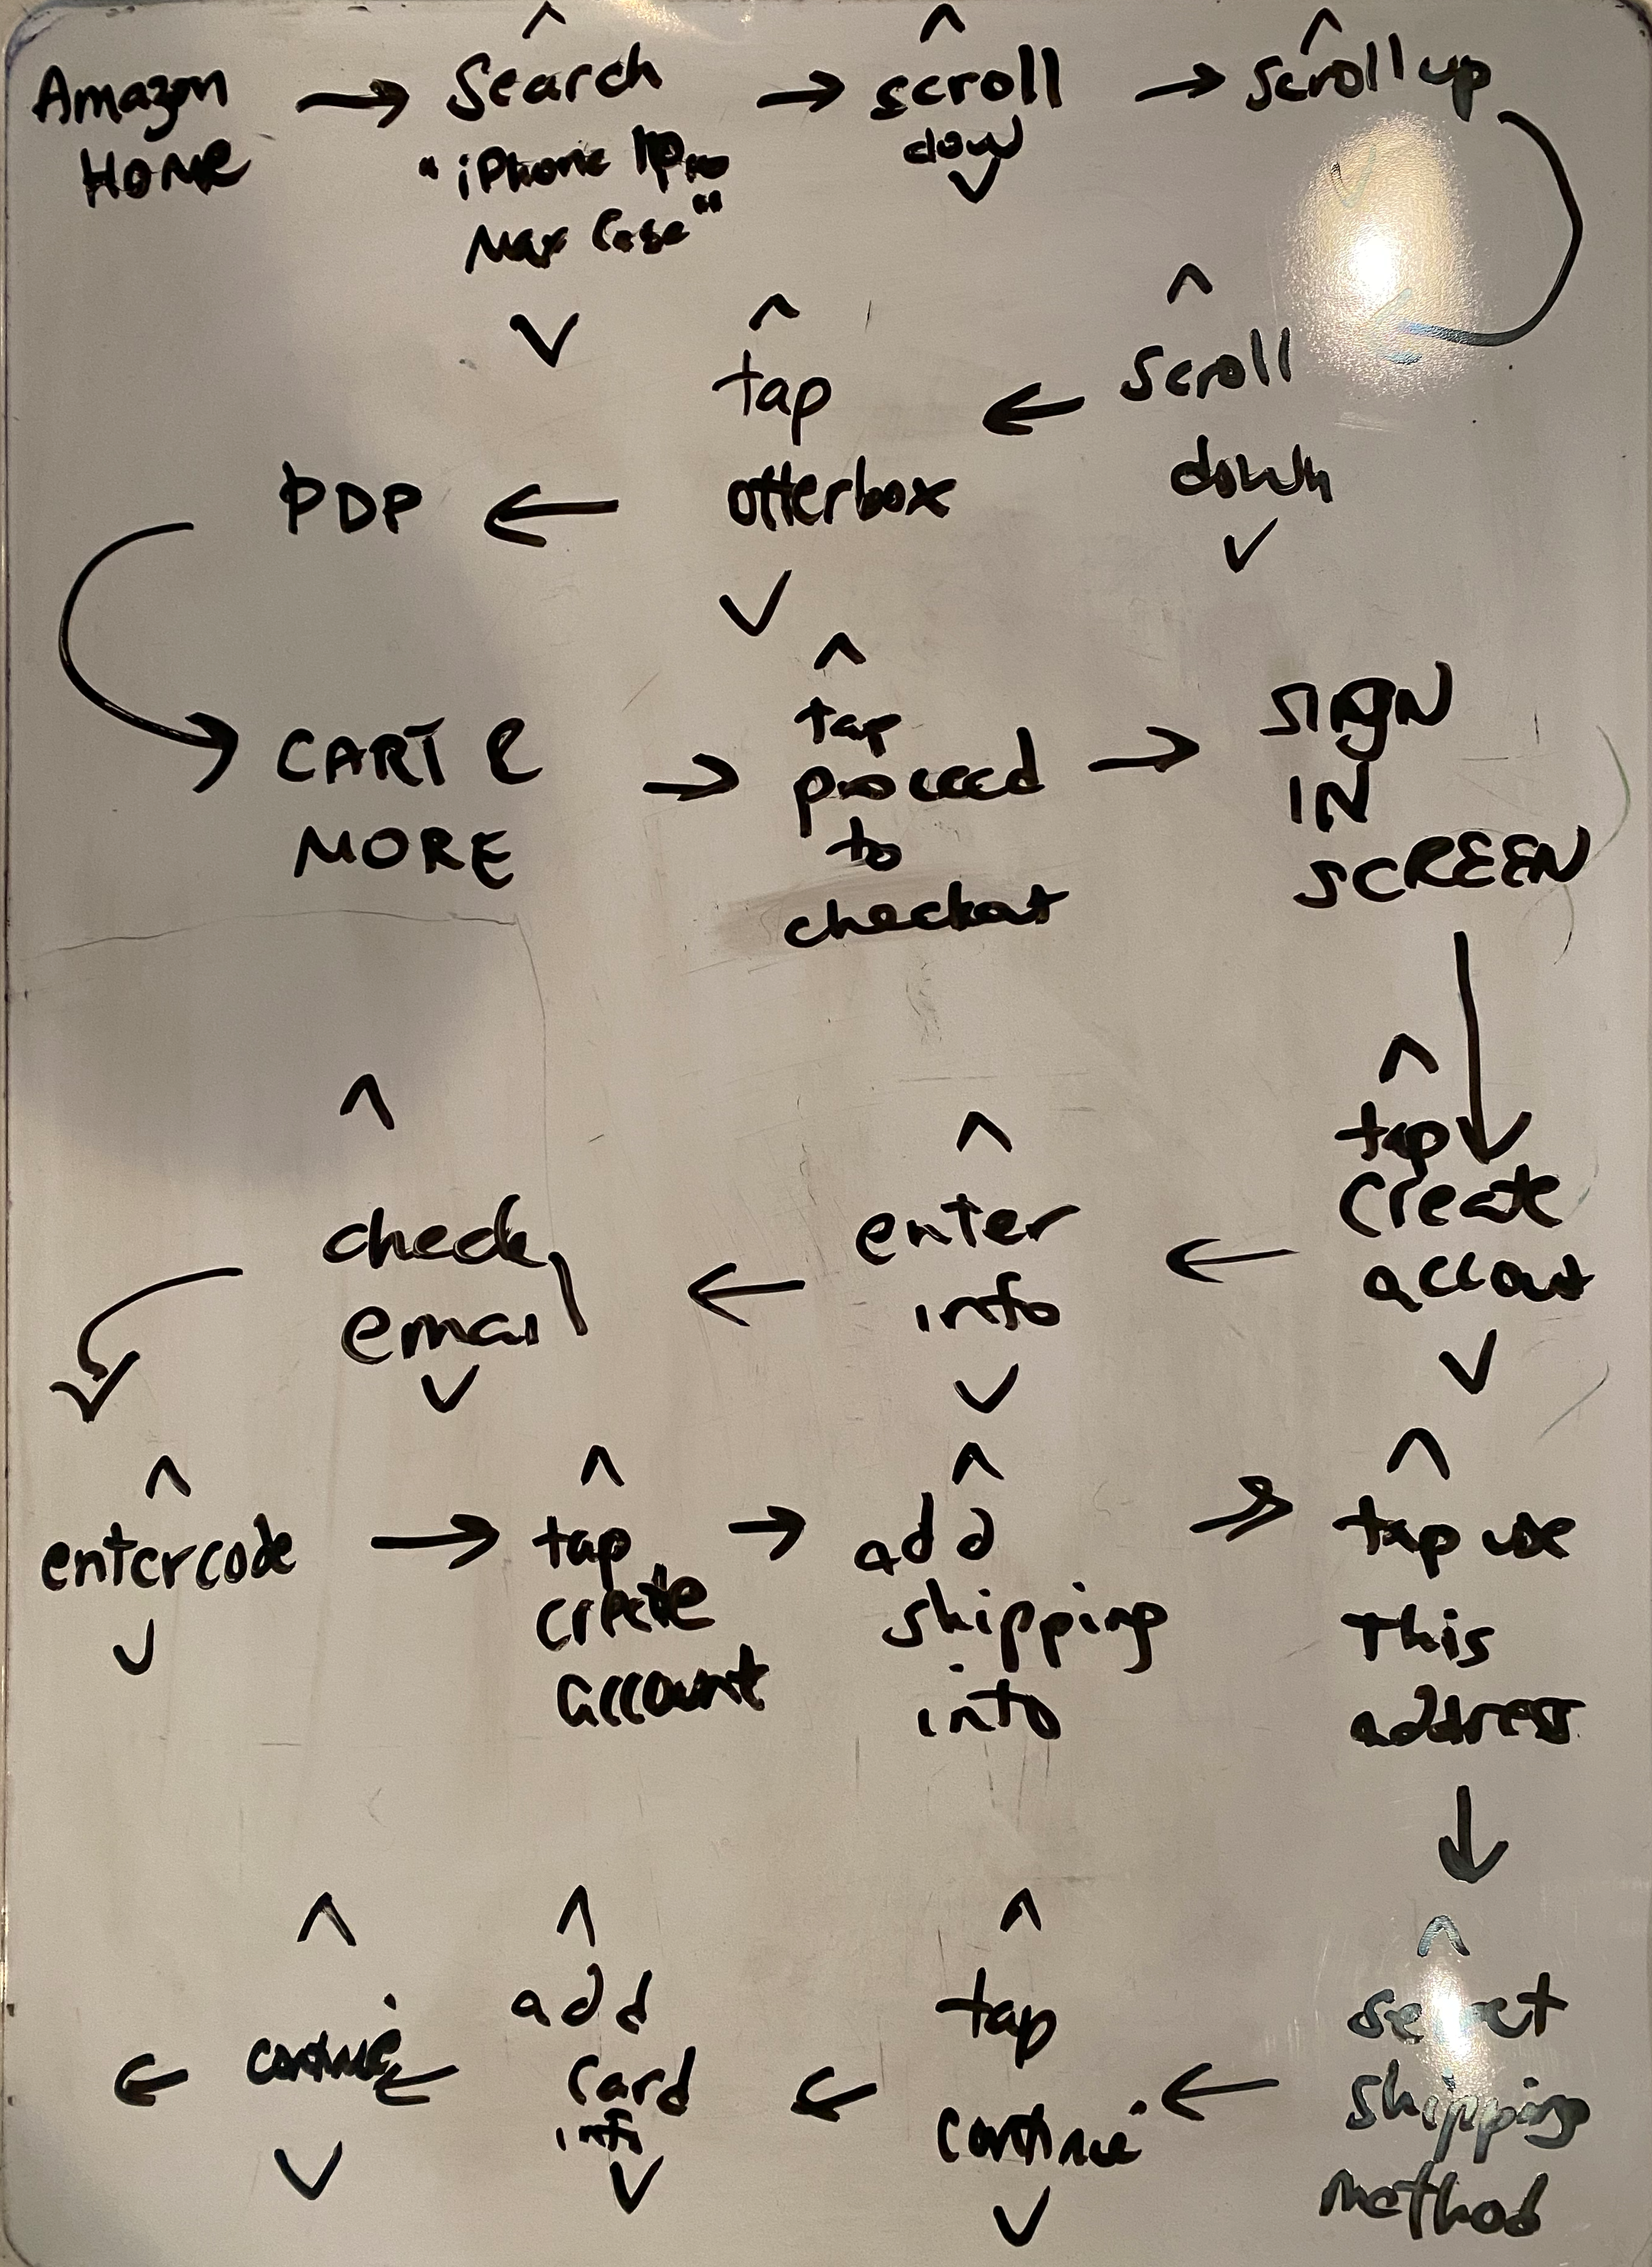 Amazon
HOME
Search
"iPhone
Max Case"
scroll
down
scroll up
scroll
down
tap
otterbox
PDP
CART &
MORE
tap
proceed
to
checkout
SIGN
IN
SCREEN
tap
create
account
enter
info
check
email
enter code
tap
create
account
add
shipping
info
tap use
this
address
select
shipping
method
tap
continue
add
card
info
continue